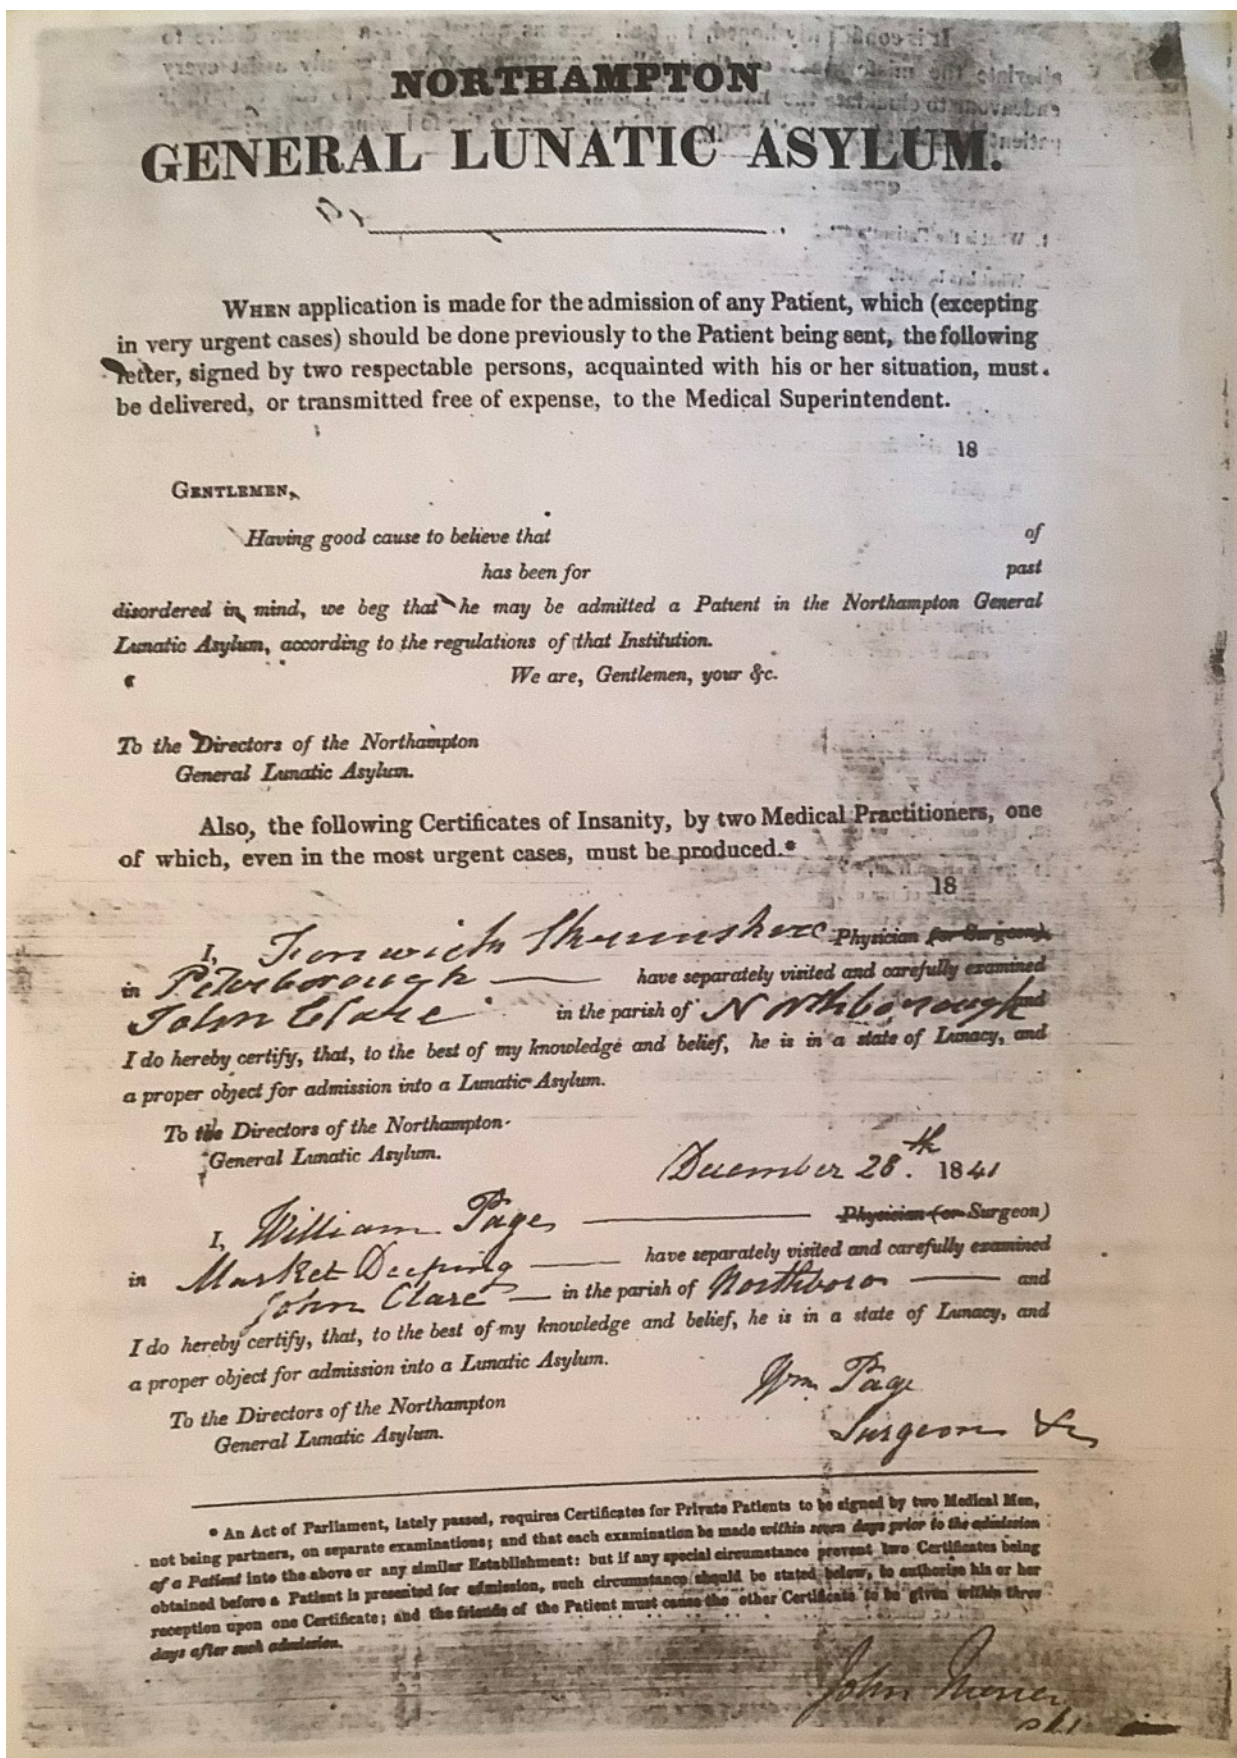 NORTHAMPTON
GENERAL LUNATIC ASYLUM.
WHEN application is made for the admission of any Patient, which (excepting
in very urgent cases) should be done previously to the Patient being sent, the following
letter, signed by two respectable persons, acquainted with his or her situation, must
be delivered, or transmitted free of expense, to the Medical Superintendent.
18
GENTLEMEN,
Having good cause to believe that of
has been for past
disordered in mind, we beg that he may be admitted a Patient in the Northampton General
Lunatic Asylum, according to the regulations of that Institution.
We are, Gentlemen, your &c.
To the Directors of the Northampton
General Lunatic Asylum.
Also, the following Certificates of Insanity, by two Medical Practitioners, one
of which, even in the most urgent cases, must be produced.*
18
I, Fenwick Skrimshire Physician (or Surgeon),
in Peterborough have separately visited and carefully examined
John Clare in the parish of Northborough and
I do hereby certify, that, to the best of my knowledge and belief, he is in a state of Lunacy, and
a proper object for admission into a Lunatic Asylum.
To the Directors of the Northampton
General Lunatic Asylum.
December 28th. 1841
I, William Page Physician (or Surgeon)
in Market Deeping have separately visited and carefully examined
John Clare in the parish of Northboro and
I do hereby certify, that, to the best of my knowledge and belief, he is in a state of Lunacy, and
a proper object for admission into a Lunatic Asylum.
Wm. Page
Surgeon &c
To the Directors of the Northampton
General Lunatic Asylum.
* An Act of Parliament, lately passed, requires Certificates for Private Patients to be signed by two Medical Men,
not being partners, on separate examinations; and that each examination be made within seven days prior to the admission
of a Patient into the above or any similar Establishment: but if any special circumstance prevent two Certificates being
obtained before a Patient is presented for admission, such circumstance should be stated below, to authorise his or her
reception upon one Certificate; and the friends of the Patient must cause the other Certificate to be given within three
days after such admission.
John